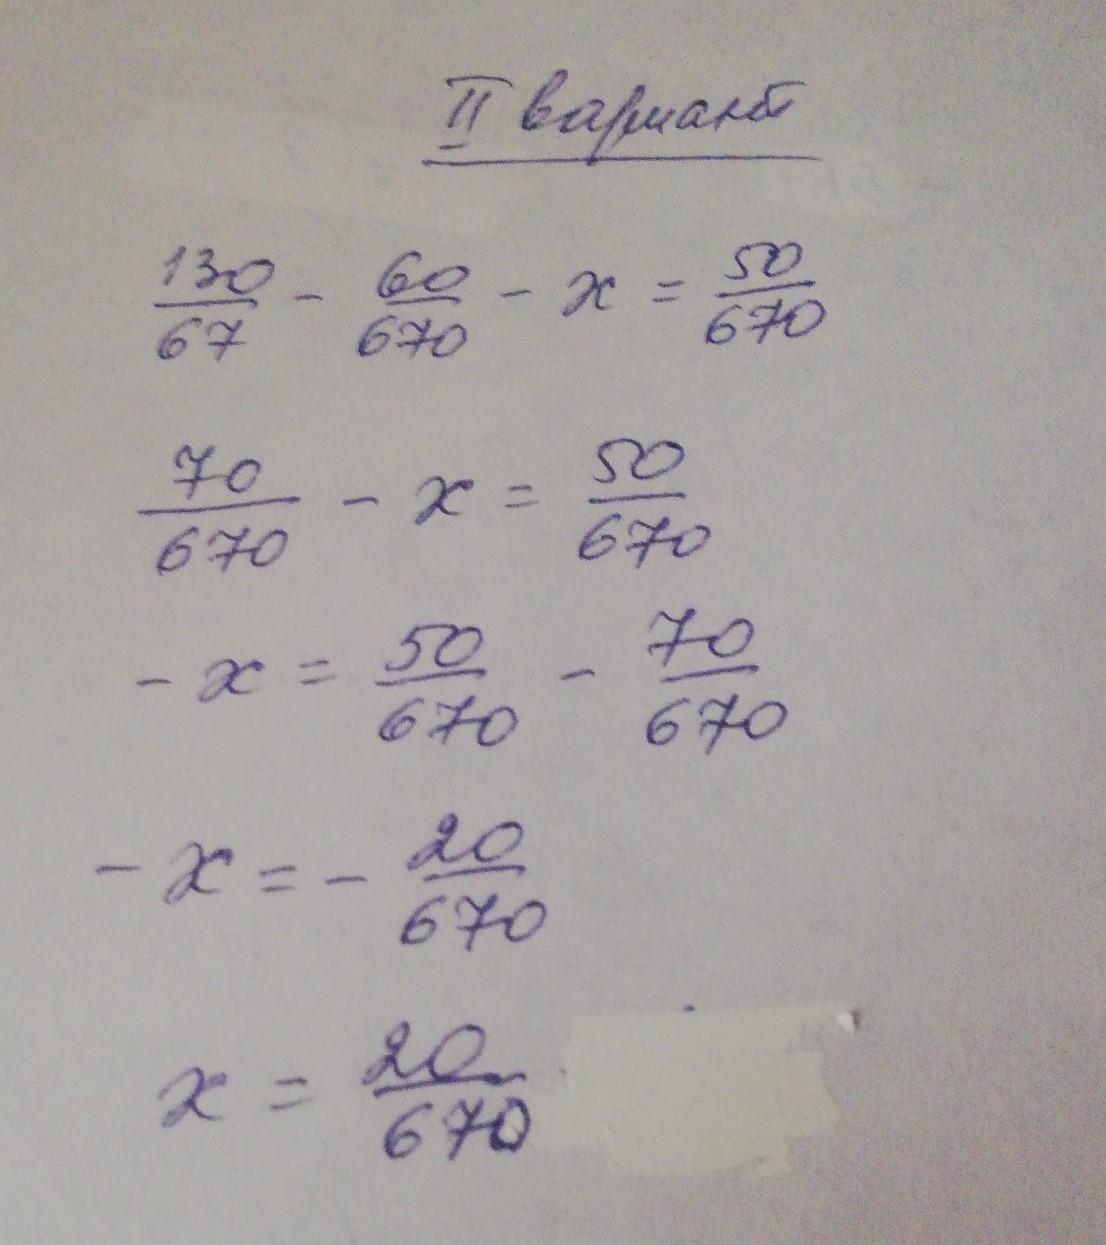 II вариант
130/67 - 60/670 - x = 50/670
70/670 - x = 50/670
- x = 50/670 - 70/670
- x = - 20/670
x = 20/670